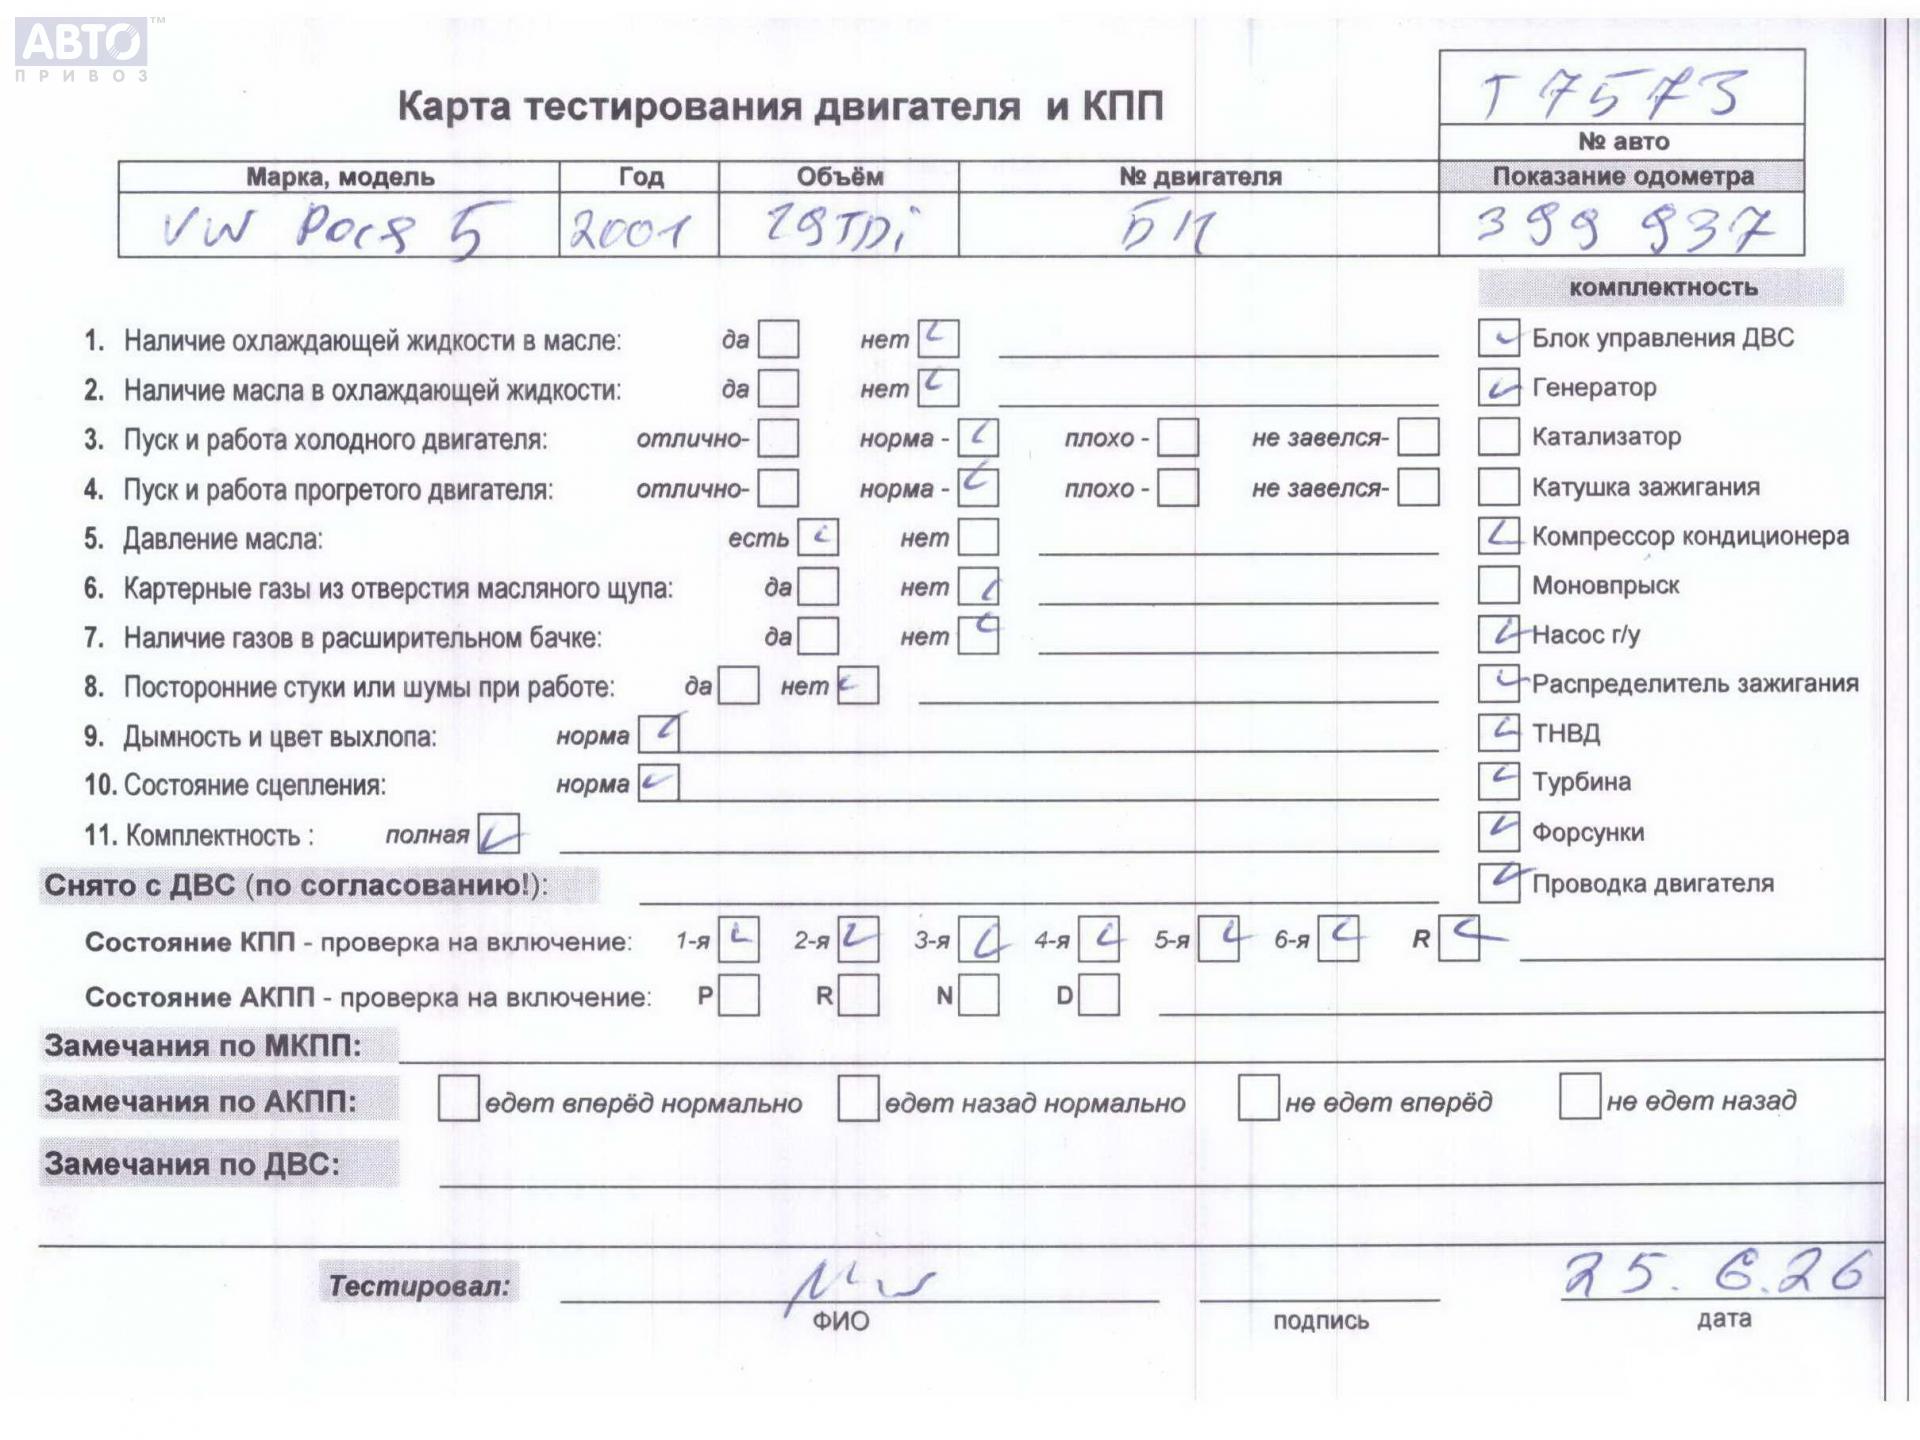 АВТО™
ПРИВОЗ
Т 7573
Карта тестирования двигателя и КПП
№ авто
Марка, модель Год Объём № двигателя Показание одометра
VW 5 2001 1.9TDi 399 937
комплектность
1. Наличие охлаждающей жидкости в масле: да нет Блок управления ДВС
2. Наличие масла в охлаждающей жидкости: да нет Генератор
3. Пуск и работа холодного двигателя: отлично- норма - плохо - не завелся- Катализатор
4. Пуск и работа прогретого двигателя: отлично- норма - плохо - не завелся- Катушка зажигания
5. Давление масла: есть нет Компрессор кондиционера
6. Картерные газы из отверстия масляного щупа: да нет Моновпрыск
7. Наличие газов в расширительном бачке: да нет Насос г/у
8. Посторонние стуки или шумы при работе: да нет Распределитель зажигания
9. Дымность и цвет выхлопа: норма ТНВД
10. Состояние сцепления: норма Турбина
11. Комплектность : полная Форсунки
Снято с ДВС (по согласованию!): Проводка двигателя
Состояние КПП - проверка на включение: 1-я 2-я 3-я 4-я 5-я 6-я R
Состояние АКПП - проверка на включение: P R N D
Замечания по МКПП:
Замечания по АКПП: едет вперёд нормально едет назад нормально не едет вперёд не едет назад
Замечания по ДВС:
Тестировал: 25.6.26
ФИО подпись дата